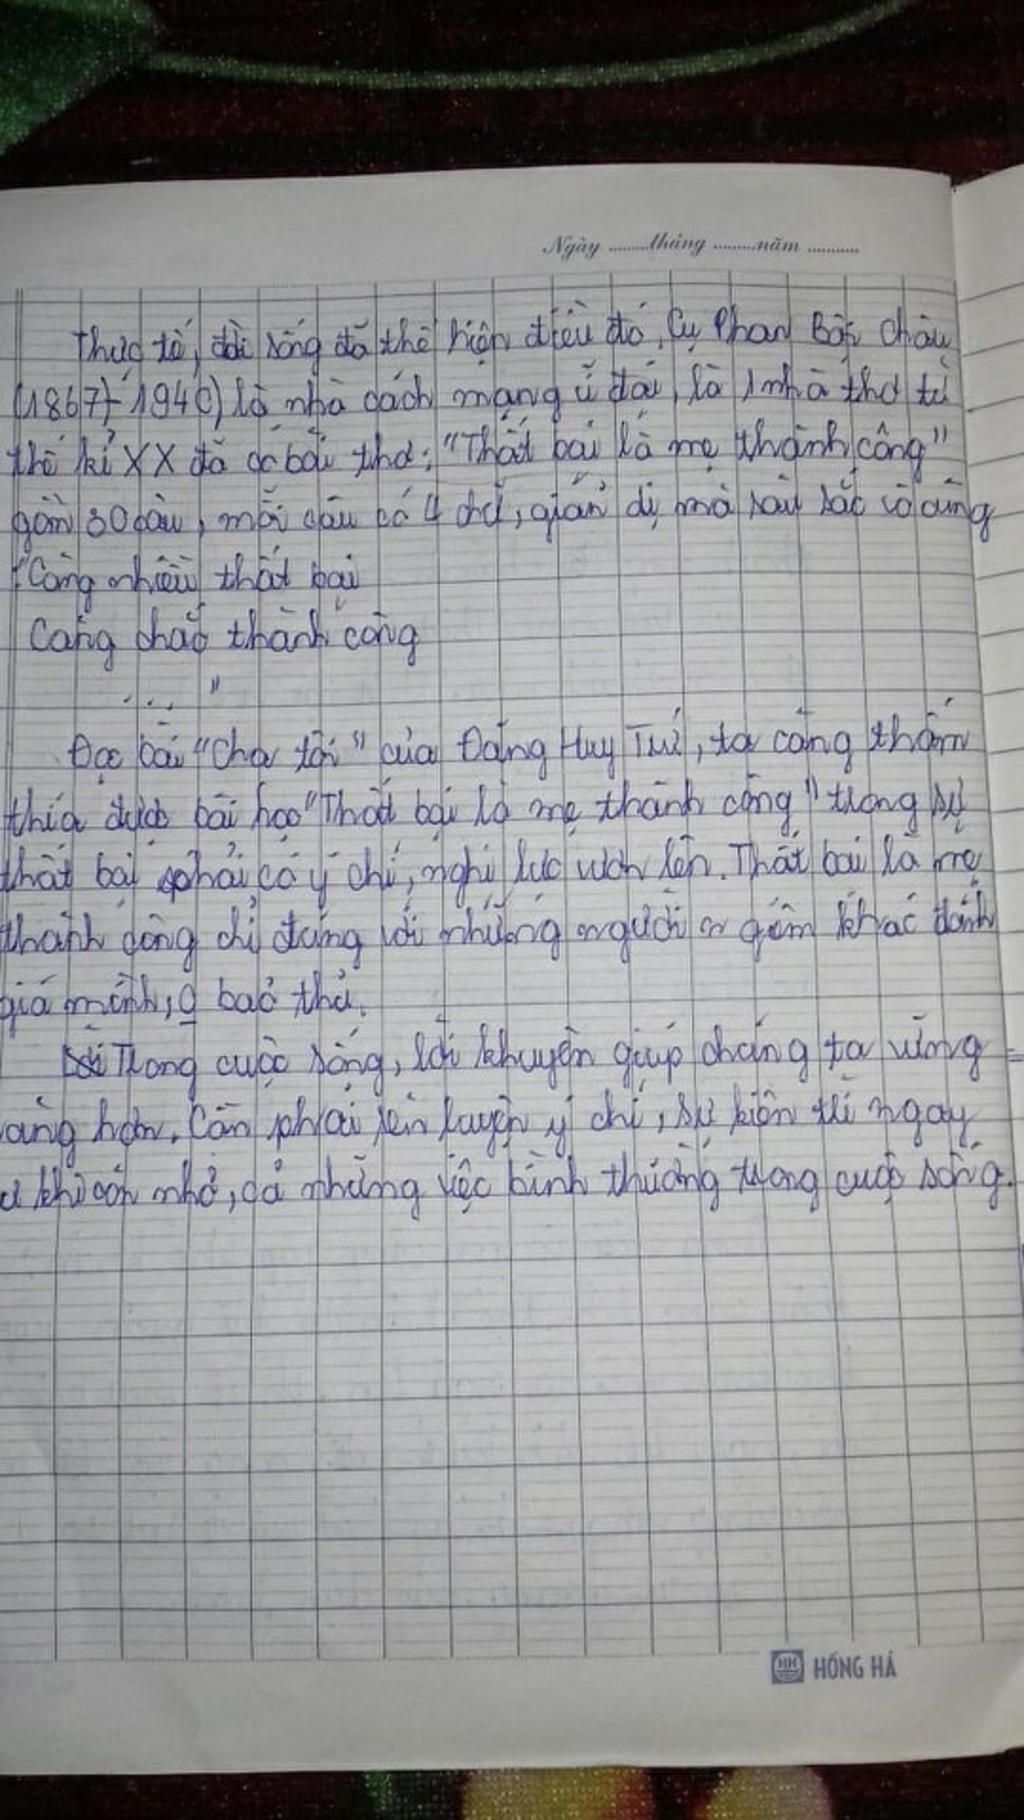 Ngày ........tháng ........năm ..........
Thực tế, đời sống đã thể hiện điều đó. Cụ Phan Bội Châu
(1867-1940) là nhà cách mạng vĩ đại, là 1 nhà thơ từ
thế kỉ XX đã có bài thơ: "Thất bại là mẹ thành công"
gồm 30 câu, mỗi câu có 4 chữ, giản dị mà sâu sắc vô cùng
"Càng nhiều thất bại
Càng chắc thành công
... "
Đọc bài "Cha tôi" của Đặng Huy Trứ, ta càng thấm
thía được bài học "Thất bại là mẹ thành công" trong sự
thất bại phải có ý chí, nghị lực vươn lên. Thất bại là mẹ
thành công chỉ đúng với những người dám khác đánh
giá mình, bảo thủ.
Trong cuộc sống, lời khuyên giúp chúng ta vững
vàng hơn. Cần phải rèn luyện ý chí, sự kiên trì ngay
từ khi còn nhỏ, cả những việc bình thường trong cuộc sống.
HỒNG HÀ